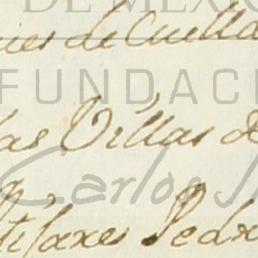 DE MÉXICO
ues de Cuella
FUNDAC
las Villas de
Carlos
tifares Pedr